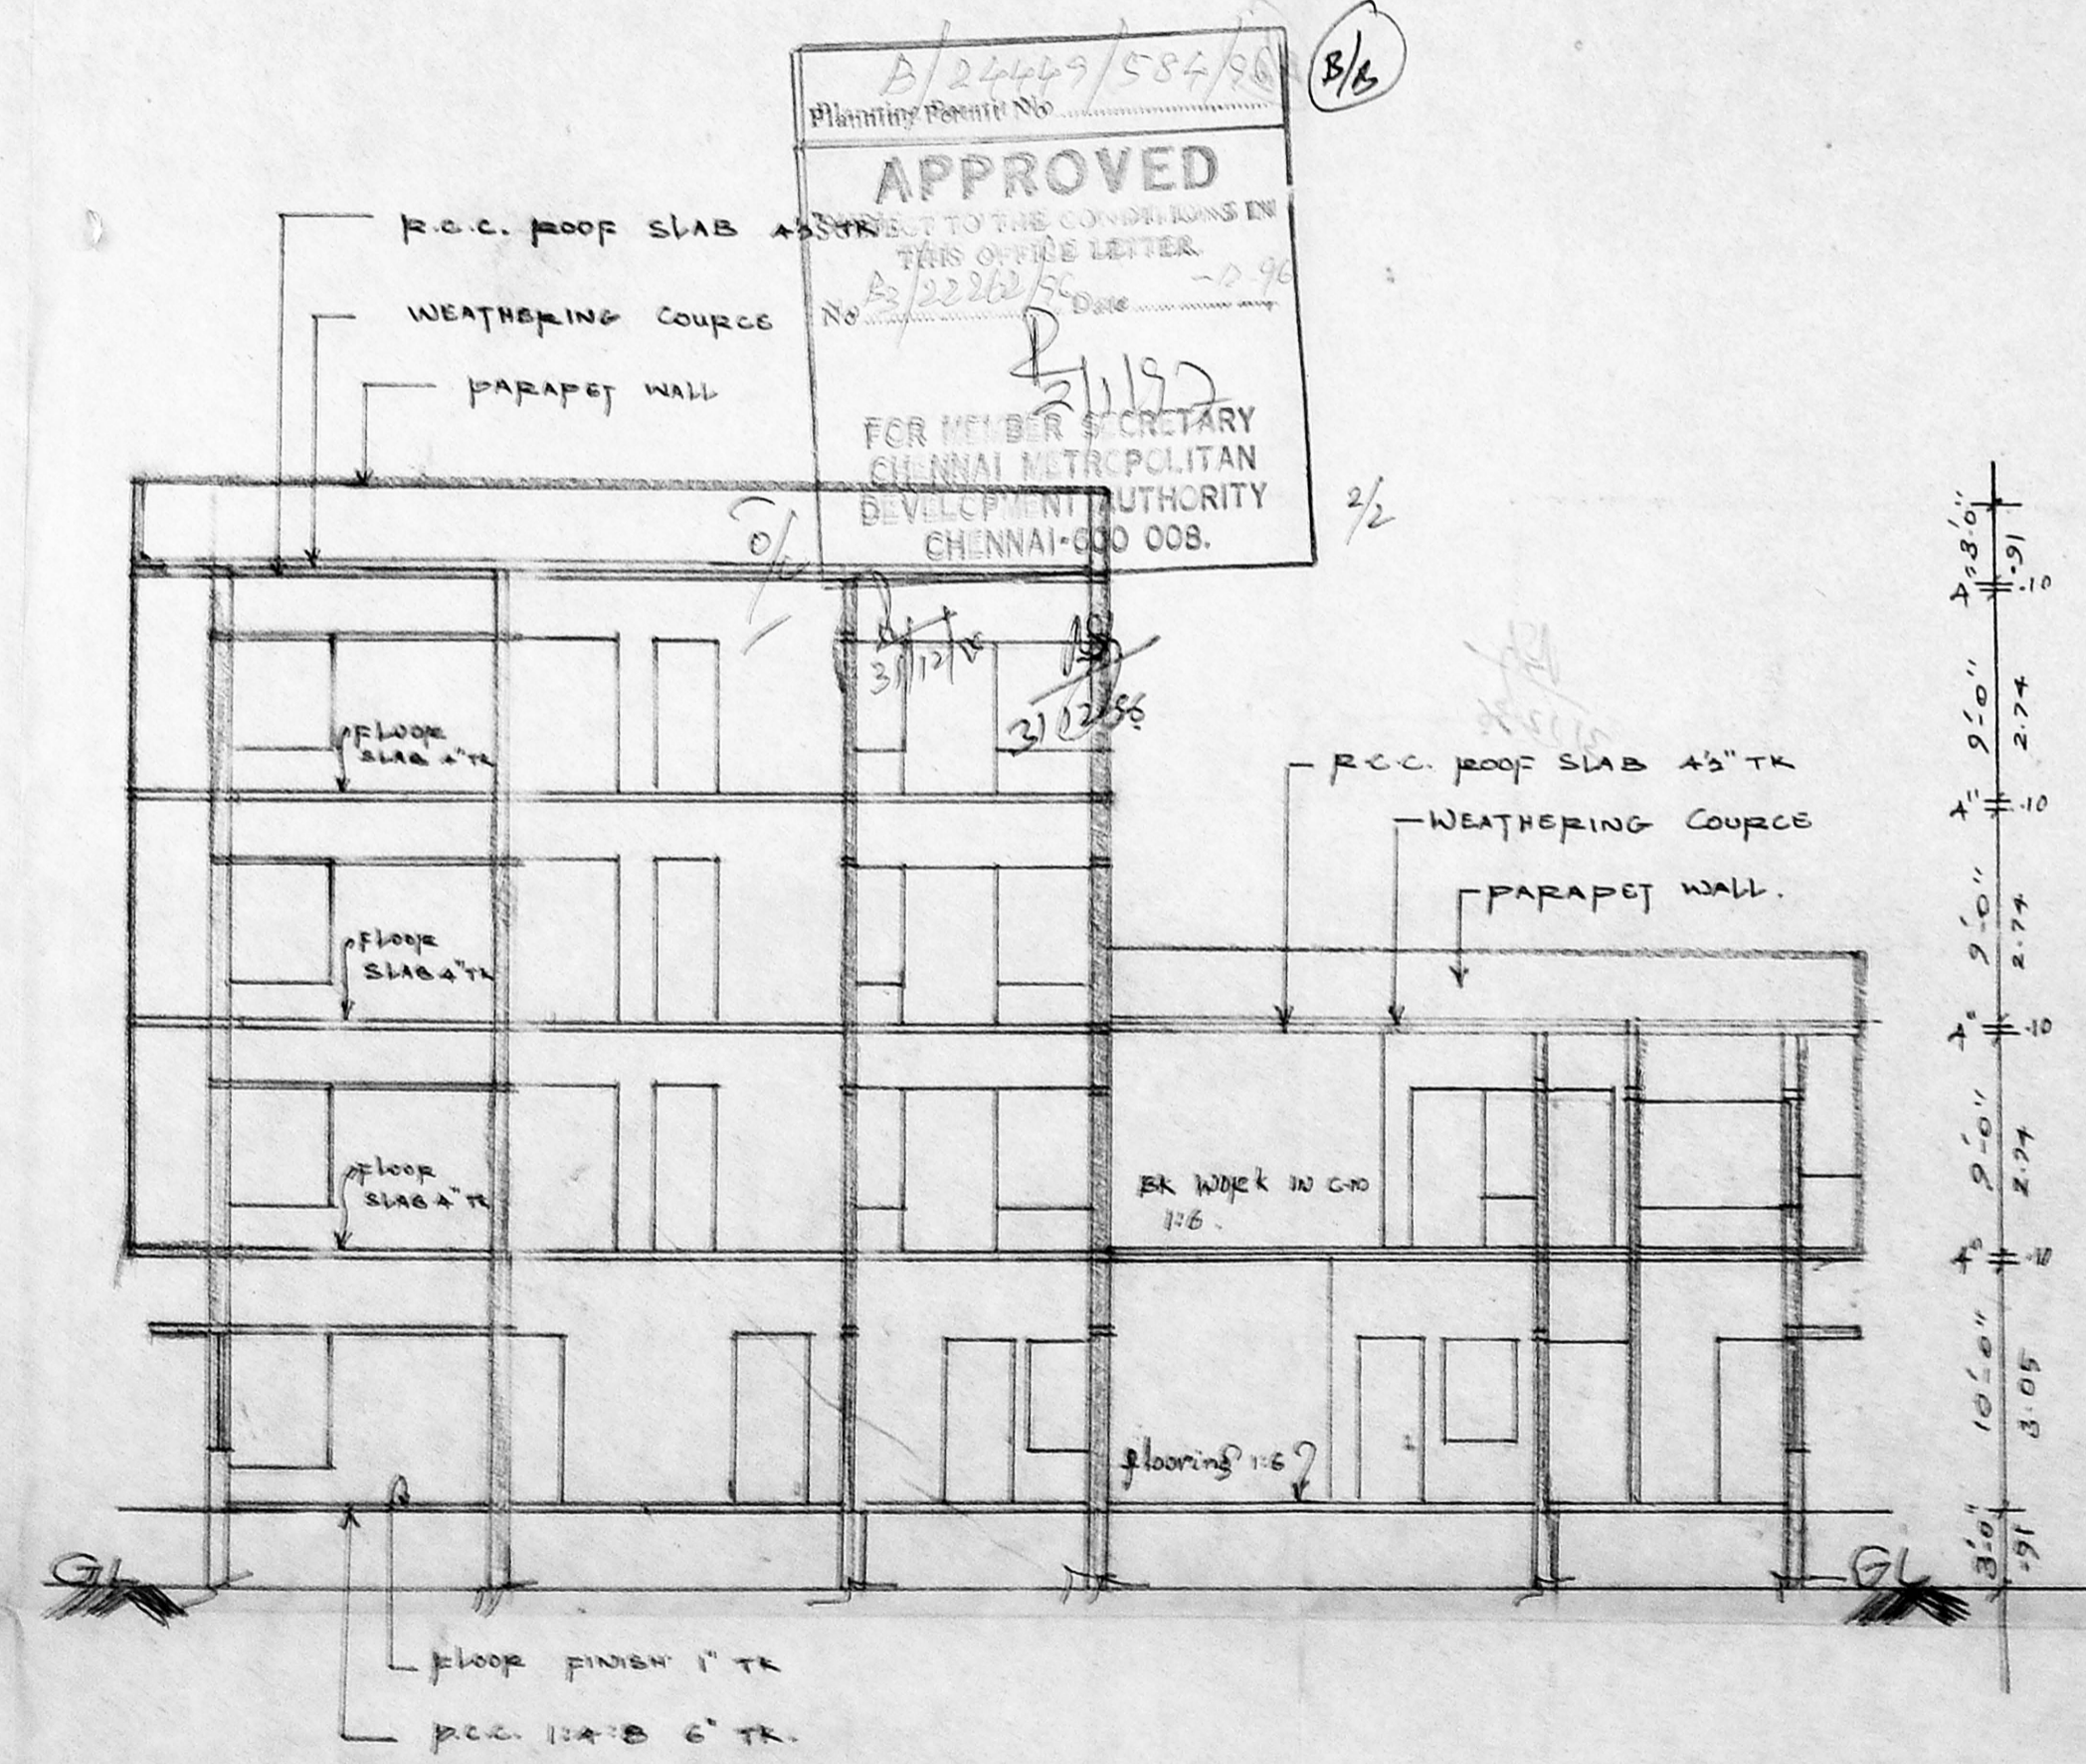 B/24449/584/96
B/B
Planning Permit No
APPROVED
SUBJECT TO THE CONDITIONS IN
THIS OFFICE LETTER
No B3/22262/96 Date -12-96
2/1/97
FOR MEMBER SECRETARY
CHENNAI METROPOLITAN
DEVELOPMENT AUTHORITY
CHENNAI-600 008.
2/2
R.C.C. ROOF SLAB 4½" TK
WEATHERING COURCE
PARAPET WALL
31/12/96
31/12/96
FLOOR
SLAB 4" TK
FLOOR
SLAB 4" TK
FLOOR
SLAB 4" TK
R.C.C. ROOF SLAB 4½" TK
WEATHERING COURCE
PARAPET WALL.
BK WORK IN C.M
1:6.
flooring 1:6
GL
GL
FLOOR FINISH 1" TK
P.C.C. 1:4:8 6" TK.
3'-0"
.91
4"
.10
9'-0"
2.74
4"
.10
9'-0"
2.74
4"
.10
9'-0"
2.74
4"
.10
10'-0"
3.05
3'-0"
.91